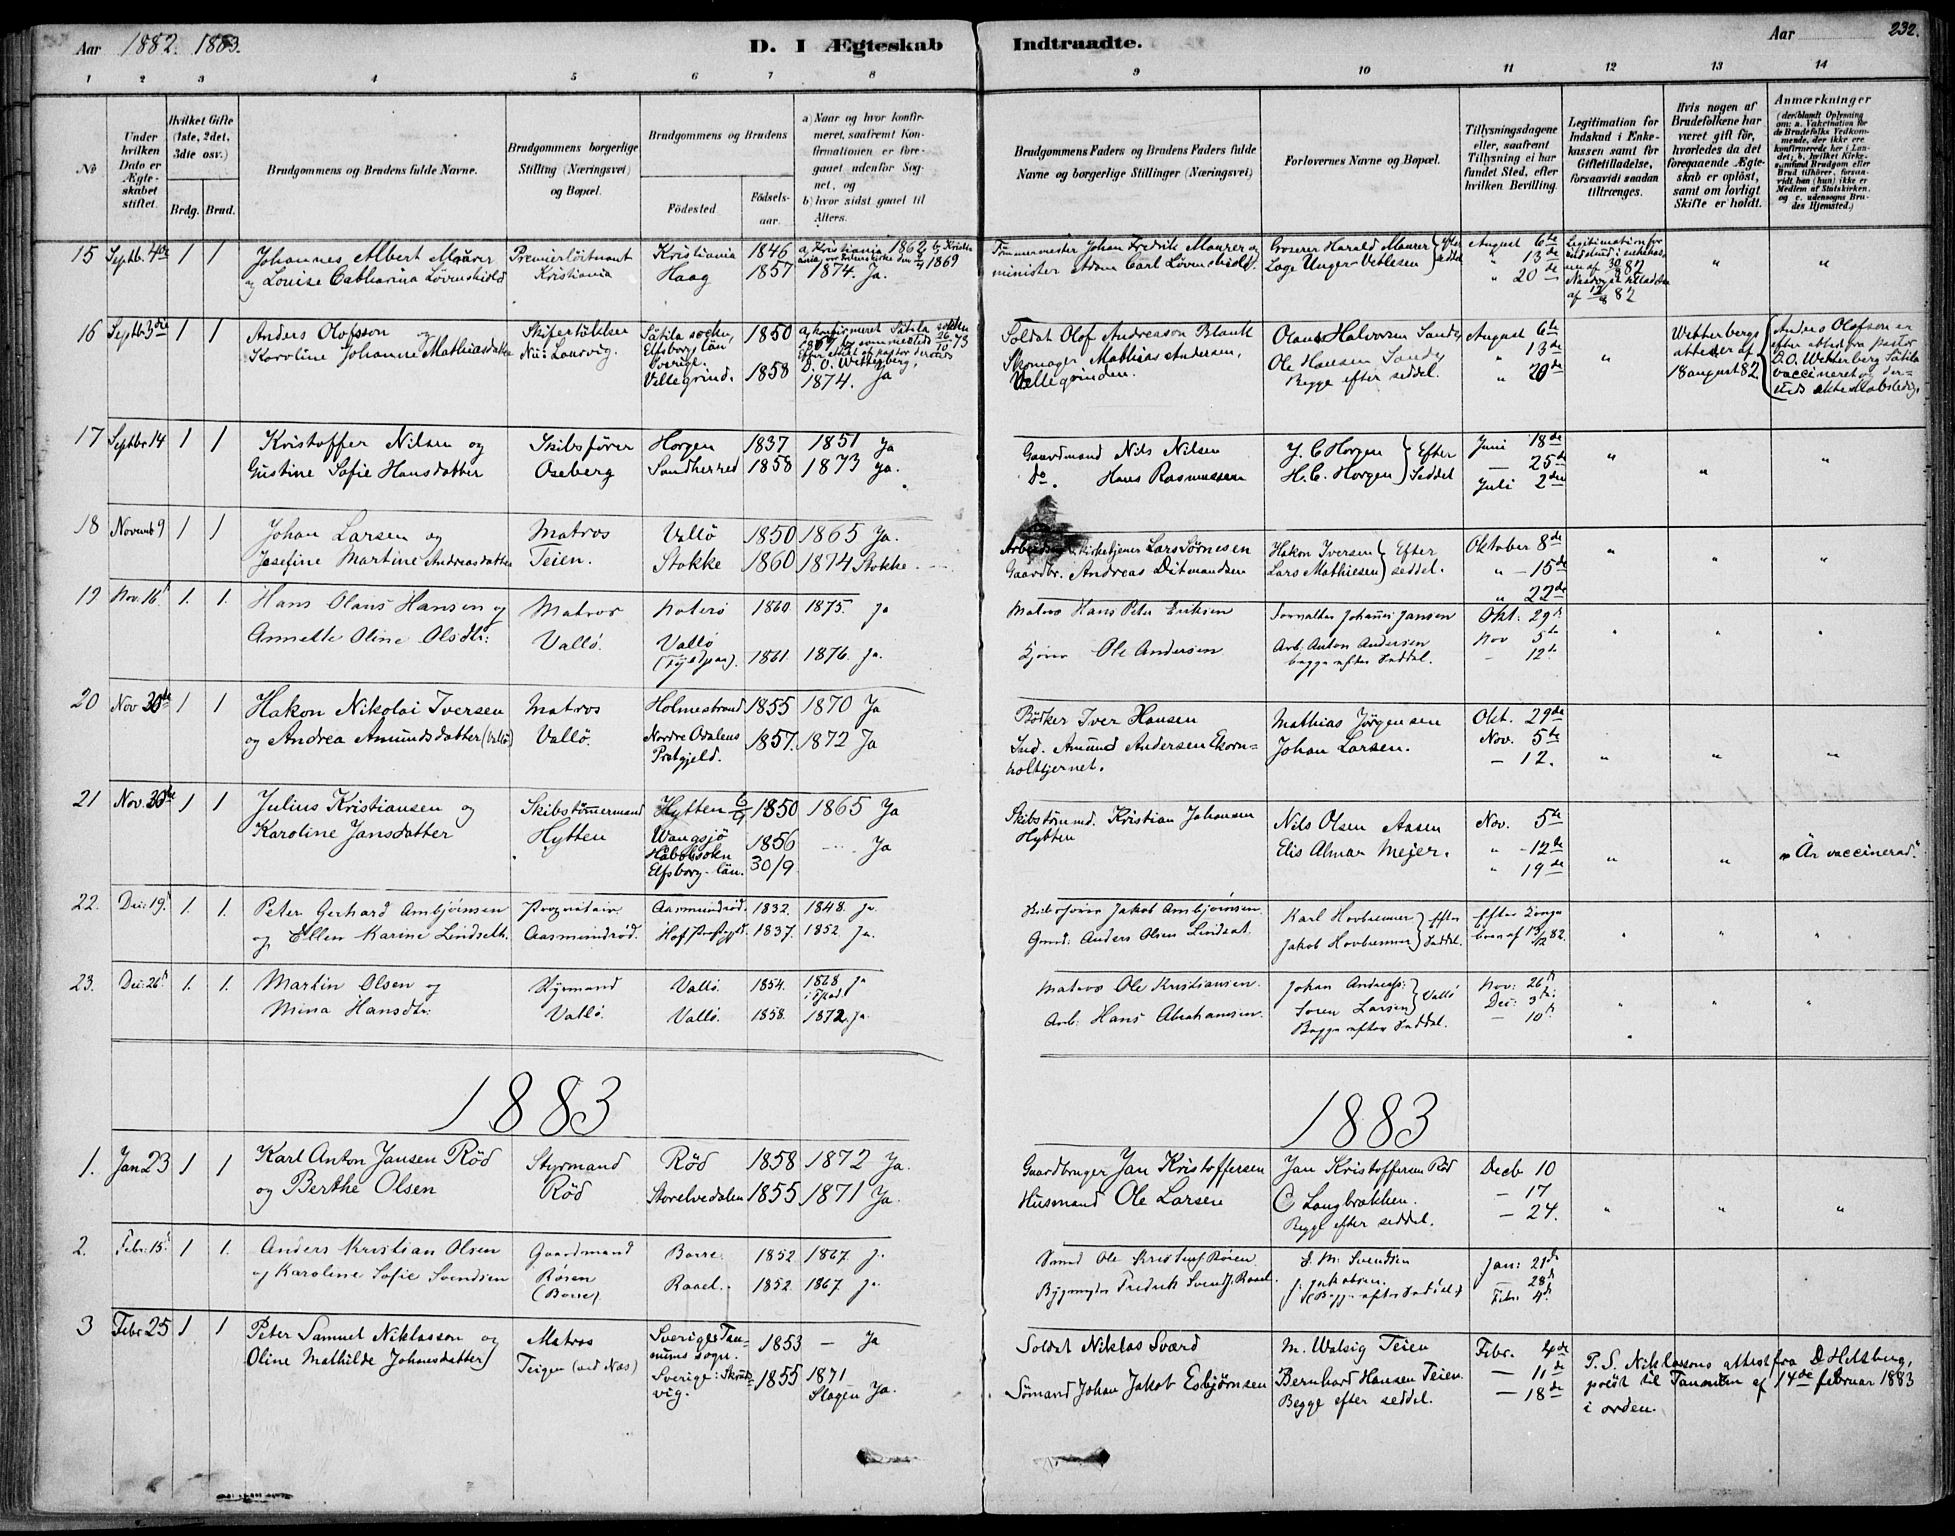 Aar 1882. 1883.
D. I Ægteskab Indtraadte.
Aar 232.
1 2 3 4 5 6 7 8 9 10 11 12 13 14
No
Under hvilken Dato er Ægteskabet stiftet.
Hvilket Gifte (1ste, 2det, 3die osv.)
Brdg. Brud.
Brudgommens og Brudens fulde Navne.
Brudgommens borgerlige Stilling (Næringsvei) og Bopæl.
Brudgommens og Brudens
Fødested
Fødselsaar.
a) Naar og hvor konfirmeret, saafremt Konfirmationen er foregaaet udenfor Sognet, og
b) hvor sidst gaaet til Alters.
Brudgommens Faders og Brudens Faders fulde Navne og borgerlige Stillinger (Næringsvei)
Forlovernes Navne og Bopæl.
Tillysningsdagene eller, saafremt Tillysning ei har fundet Sted, efter hvilken Bevilling.
Legitimation for Indskud i Enkekassen samt for Giftetilladelse, forsaavidt saadan tiltrænges.
Hvis nogen af Brudefolkene har været gift før, hvorledes da det foregaaende Ægteskab er opløst, samt om lovligt Skifte er holdt.
Anmærkninger
(deriblandt Oplysning om: a. Vakcination for de Brudefolks Vedkommende, der ikke ere konfirmerede her i Landet; b. hvilket Kirkesamfund Brudgom eller Brud tilhører, forsaavidt han (hun) ikke er Medlem af Statskirken, og c. udensogns Brudes Hjemsted.)
15 Septb. 4de 1 1 Johannes Albert Maurer Premierløitnant Kristiania 1846 a, Kristiania 1862
og Louise Catharina Løvenskiold Kristiania Haag 1857 1874. Ja
minister Adam Carl Løvenskiold.
Grosserer Harald Maurer
Lage Unger-Vetlesen
August 6te
" 13de
" 20de
Legitimation for
" "
16 Septb. 3die 1 1 Anders Olofsson og Sätila socken, 1850
Karoline Johanne Mathiasdatter Elfsborg län
Sverige.
Vellegrind. 1858 1874. Ja
Soldat Olof Andreason Blank
Skomager Mathias Andersen,
Vellegrinden.
Olaus Halvorsen Sandø
Ole Hansen Sandø
Begge efter seddel.
August 6te
" 13de
" 20de
"
Wetterbergs
attester af
18 august 82.
Anders Olofson er
efter attest fra pastor
D. O. Wetterberg Sätila
vaccineret og
17 Septbr 14 1 1 Kristoffer Nilsen og Skibsfører Horgen 1837 1851 Ja
Gustine Sofie Hansdatter Oseberg Sandherred 1858 1873 Ja.
Gaardmand Nils Nilsen
Do. Hans Rasmussen
J. C Horgen
H. C. Horgen
Efter Seddel
Juni 18de
— 25de
Juli 2den
" " "
18 Novemb 9 1 1 Johan Larsen og Matros Vallø 1850 1865 Ja.
Josefine Martine Andreasdatter Teien. Stokke 1860 1874 Stokke.
Kirketjener Lars Sørnesen
Gaardbr. Andreas Ditmandsen
Hakon Iversen
Lars Mathiesen
Efter seddel.
Oktober 8de
" — 15de
" 22de
" " "
19 Nov. 16 1. 1. Hans Olaus Hansen og Matros Noterø 1860 1875. Ja
Annette Oline Olsdtr: Vallø. Vallø 1861. 1876. Ja.
Matros Hans Peter Eriksen
Ole Andersen
Johannes Jansen
Arb. Anton Andersen
begge efter Seddel.
Okt. 29de
Nov 5te
— 12te
" " "
20 Nov 30de 1 1 Hakon Nikolai Iversen Matros Holmestrand 1855 1870 Ja
og Andrea Amundsdatter (Vallø) Vallø. Nordre Odalens 1857. 1872 Ja
Prstgjeld.
Bödker Iver Hansen
Ind. Amund Andersen Ekornholttjernet.
Mathias Jørgensen
Johan Larsen.
Okt. 29de
Nov. 5te
— 12.
" " "
21 Nov. 30te 1 1 Julius Kristiansen og Skibstømmermand Hytten 1850 1865 Ja
Karoline Jansdatter Hytten Wangsjö 1856 — Ja
Håbolsokn 30/9
Elfsborg-län.
Skibstømmd. Kristian Johansen
Hytten
Nils Olsen Aasen
Elis Almar Mejer.
Nov. 5te
" — 12te
" 19de
" " "Är vaccinerad."
22. Dec: 19. 1. 1. Peter Gerhard Ambjørnsen Proprietair. Aasmundrød. 1832. 1848. Ja.
og Ellen Karine Lindseth. Aasmundrød. Hof Prstgjd. 1837. 1852 Ja.
Skibsfører Jakob Ambjørnsen.
Gmd. Anders Olsen Lindset.
Karl Hovbrenner
Jakob Hovbrenner
Efter Seddel.
" " "
23. Dec: 26 1. 1. Martin Olsen og Styrmand Vallø. 1854. 1868 Ja
Mina Hansdtr: Vallø. Vallø. 1858. 1872. Ja.
Matros Ole Kristiansen.
Arb. Hans Abrahamsen.
Johan Andreass:
Soren Larsen
Vallø
Begge efter Seddel.
Nov: 26
Dec: 3die
— 10
" " "
1883
1883
1. Jan 23 1 1 Karl Anton Jansen Rød Styrmand Rød 1858 1872 Ja.
og Berthe Olsen Rød Storelvedalen 1855 1871 Ja.
Gaardbruger Jan Kristoffersen
Husmand Ole Larsen
Jan Kristoffersen Rød
C Langbrækken.
Begge efter seddel.
Decb 10
— 17
— 24.
" " "
2. Febr: 15 1 1. Anders Kristian Olsen Gaardmand Borre. 1852 1867. Ja
og Karoline Sofie Svendsen Røren Raael. 1852. 1867. Ja
(Borre).
Fredrik Raael.
S. M. Svendsen
J. Jakobsen.
(Begge efter Seddel.)
Jan: 21
— 28
Febr. 4de
3 Febr 25 1 1 Peter Samuel Niklasson og Matros Sverige: Tanums sogn. 1853 — Ja
Oline Mathilde Johnesdatter Teigen (ved Næs) Sverige: 1855 1871
Slagen Ja.
Soldat Niklas Svärd
Sömand Johan Jakob Esbjørnsen
M. Walsig Teien
Bernhard Hansen Teien.
Begge efter seddel.
Febr. 4de
— 11de
— 18de
P. S. Niklassons attest fra D Heltberg,
præst til Tanum af 14de februar 1883
i orden.